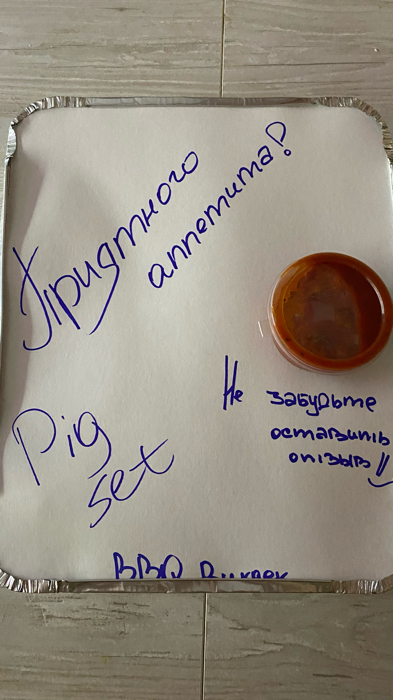 Приятного
аппетита!
Не забудьте
оставить
отзыв!!
Pig
set
BBQ